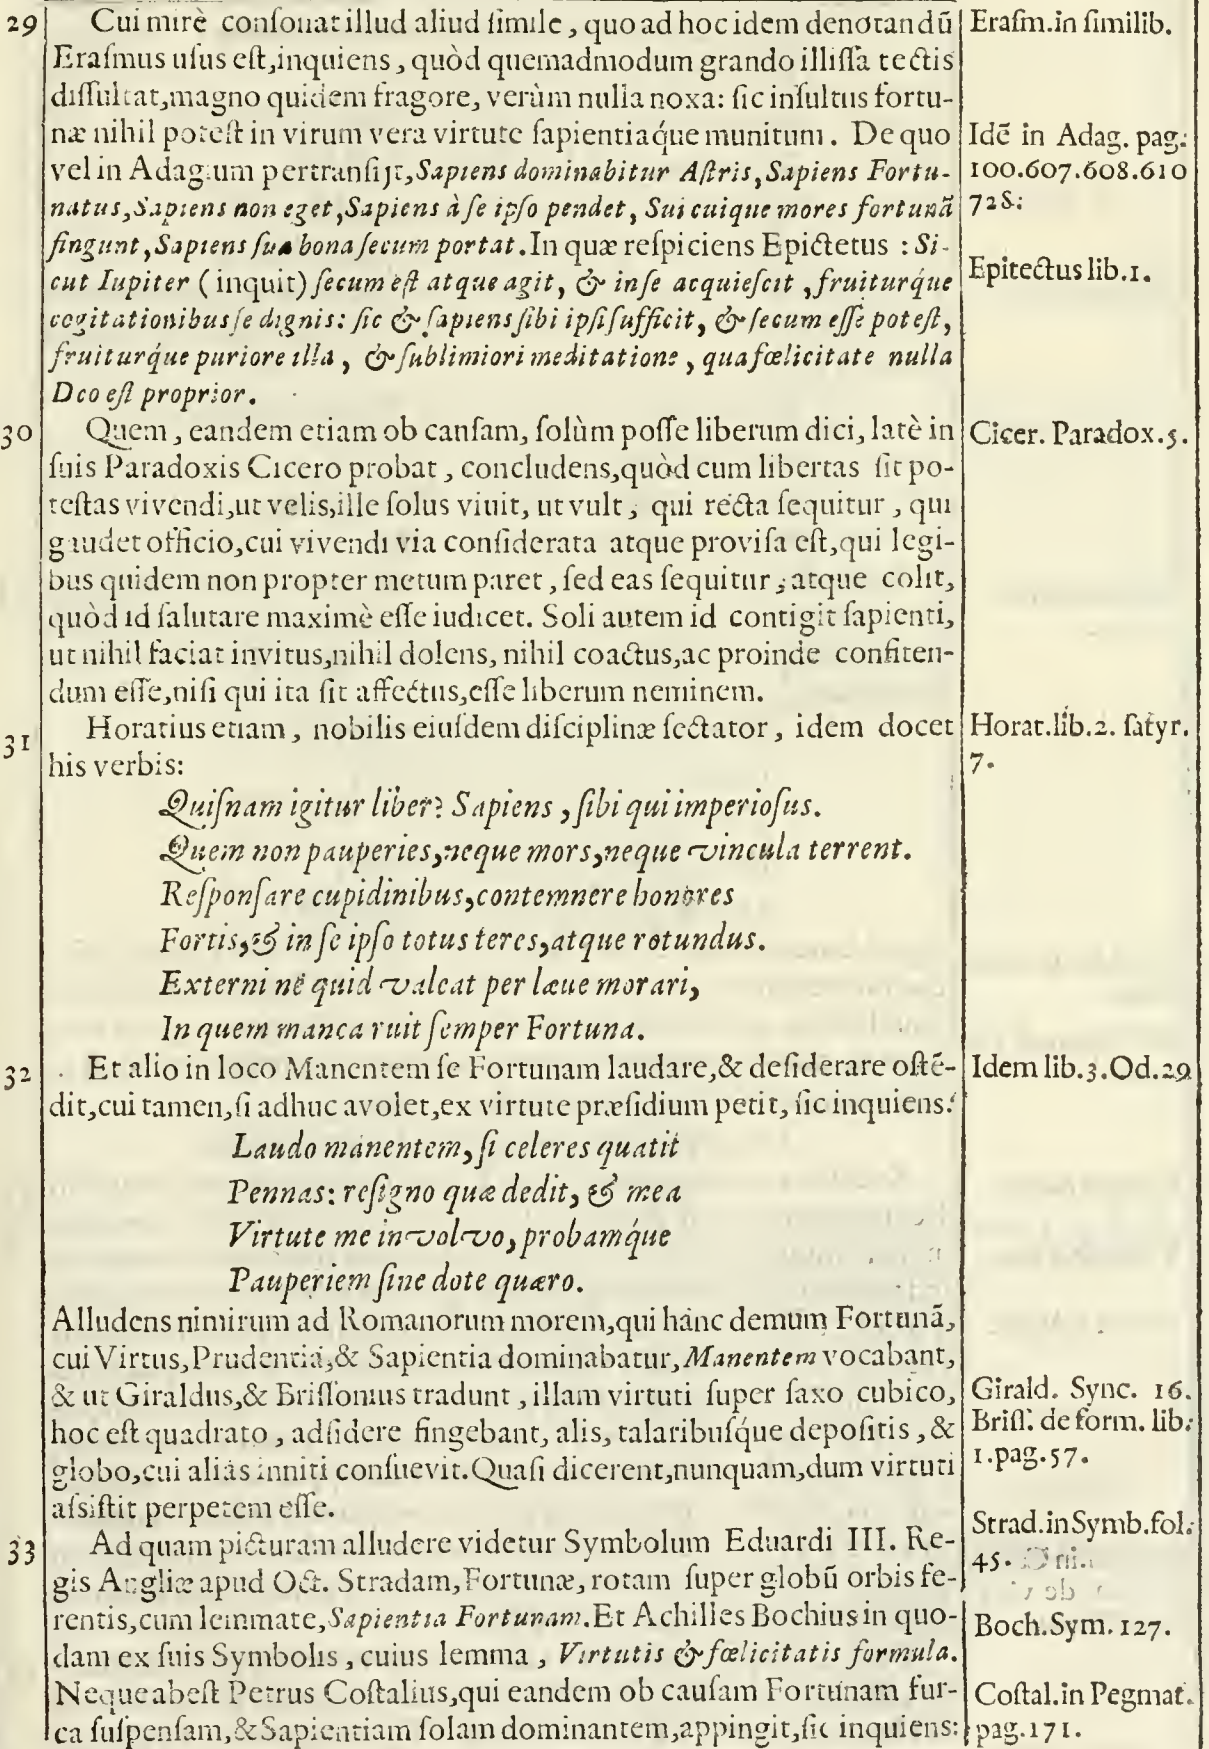 29 Cui mirè conſonat illud aliud ſimile, quo ad hoc idem denotandū
Eraſm. in ſimilib.
Eraſmus uſus eſt, inquiens, quòd quemadmodum grando illiſſa tectis
diſſultat, magno quidem fragore, verùm nulla noxa: ſic inſultus fortu-
næ nihil poteſt in virum vera virtute ſapientiaq́ue munitum. De quo
Idē in Adag. pag.
100.607.608.610
728.
vel in Adagium pertranſijt, Sapiens dominabitur Aſtris, Sapiens Fortu-
natus, Sapiens non eget, Sapiens à ſe ipſo pendet, Sui cuique mores fortunā
fingunt, Sapiens ſua bona ſecum portat. In quæ reſpiciens Epictetus: Si-
Epitectus lib.1.
cut Iupiter (inquit) ſecum eſt atque agit, & in ſe acquieſcit, fruiturq́ue
cogitationibus ſe dignis: ſic & ſapiens ſibi ipſi ſufficit, & ſecum eſſe poteſt,
fruiturq́ue puriore illa, & ſublimiori meditatione, qua fœlicitate nulla
Deo eſt proprior.
30 Quem, eandem etiam ob canſam, ſolùm poſſe liberum dici, latè in
Cicer. Paradox.5.
ſuis Paradoxis Cicero probat, concludens, quòd cum libertas ſit po-
teſtas vivendi, ut velis, ille ſolus viuit, ut vult, qui recta ſequitur, qui
gaudet officio, cui vivendi via conſiderata atque proviſa eſt, qui legi-
bus quidem non propter metum paret, ſed eas ſequitur, atque colit,
quòd id ſalutare maximè eſſe iudicet. Soli autem id contigit ſapienti,
ut nihil faciat invitus, nihil dolens, nihil coactus, ac proinde confiten-
dum eſſe, niſi qui ita ſit affectus, eſſe liberum neminem.
31 Horatius etiam, nobilis eiuſdem diſciplinæ ſectator, idem docet
Horat.lib.2. ſatyr.
7.
his verbis:
Quiſnam igitur liber? Sapiens, ſibi qui imperioſus.
Quem non pauperies, neque mors, neque vincula terrent.
Reſponſare cupidinibus, contemnere honores
Fortis, & in ſe ipſo totus teres, atque rotundus.
Externi nè quid valeat per læue morari,
In quem manca ruit ſemper Fortuna.
32 Et alio in loco Manentem ſe Fortunam laudare, & deſiderare oſtē-
Idem lib.3.Od.29
dit, cui tamen, ſi adhuc avolet, ex virtute præſidium petit, ſic inquiens:
Laudo manentem, ſi celeres quatit
Pennas: reſigno quæ dedit, & mea
Virtute me involvo, probamq́ue
Pauperiem ſine dote quæro.
Alludens nimirum ad Romanorum morem, qui hanc demum Fortunā,
cui Virtus, Prudentia, & Sapientia dominabatur, Manentem vocabant,
& ut Giraldus, & Briſſonius tradunt, illam virtuti ſuper ſaxo cubico,
Girald. Sync. 16.
Briſſ. de form. lib.
1.pag.57.
hoc eſt quadrato, adſidere fingebant, alis, talaribuſq́ue depoſitis, &
globo, cui aliàs inniti conſuevit. Quaſi dicerent, nunquam, dum virtuti
aſsiſtit perpetem eſſe.
33 Ad quam picturam alludere videtur Symbolum Eduardi III. Re-
Strad.in Symb.fol.
45.
gis Angliæ apud Oct. Stradam, Fortunæ, rotam ſuper globū orbis fe-
rentis, cum lemmate, Sapientia Fortunam. Et Achilles Bochius in quo-
Boch.Sym. 127.
dam ex ſuis Symbolis, cuius lemma, Virtutis & fœlicitatis formula.
Neque abeſt Petrus Coſtalius, qui eandem ob cauſam Fortunam fur-
Coſtal.in Pegmat.
pag.171.
ca ſuſpenſam, & Sapientiam ſolam dominantem, appingit, ſic inquiens: